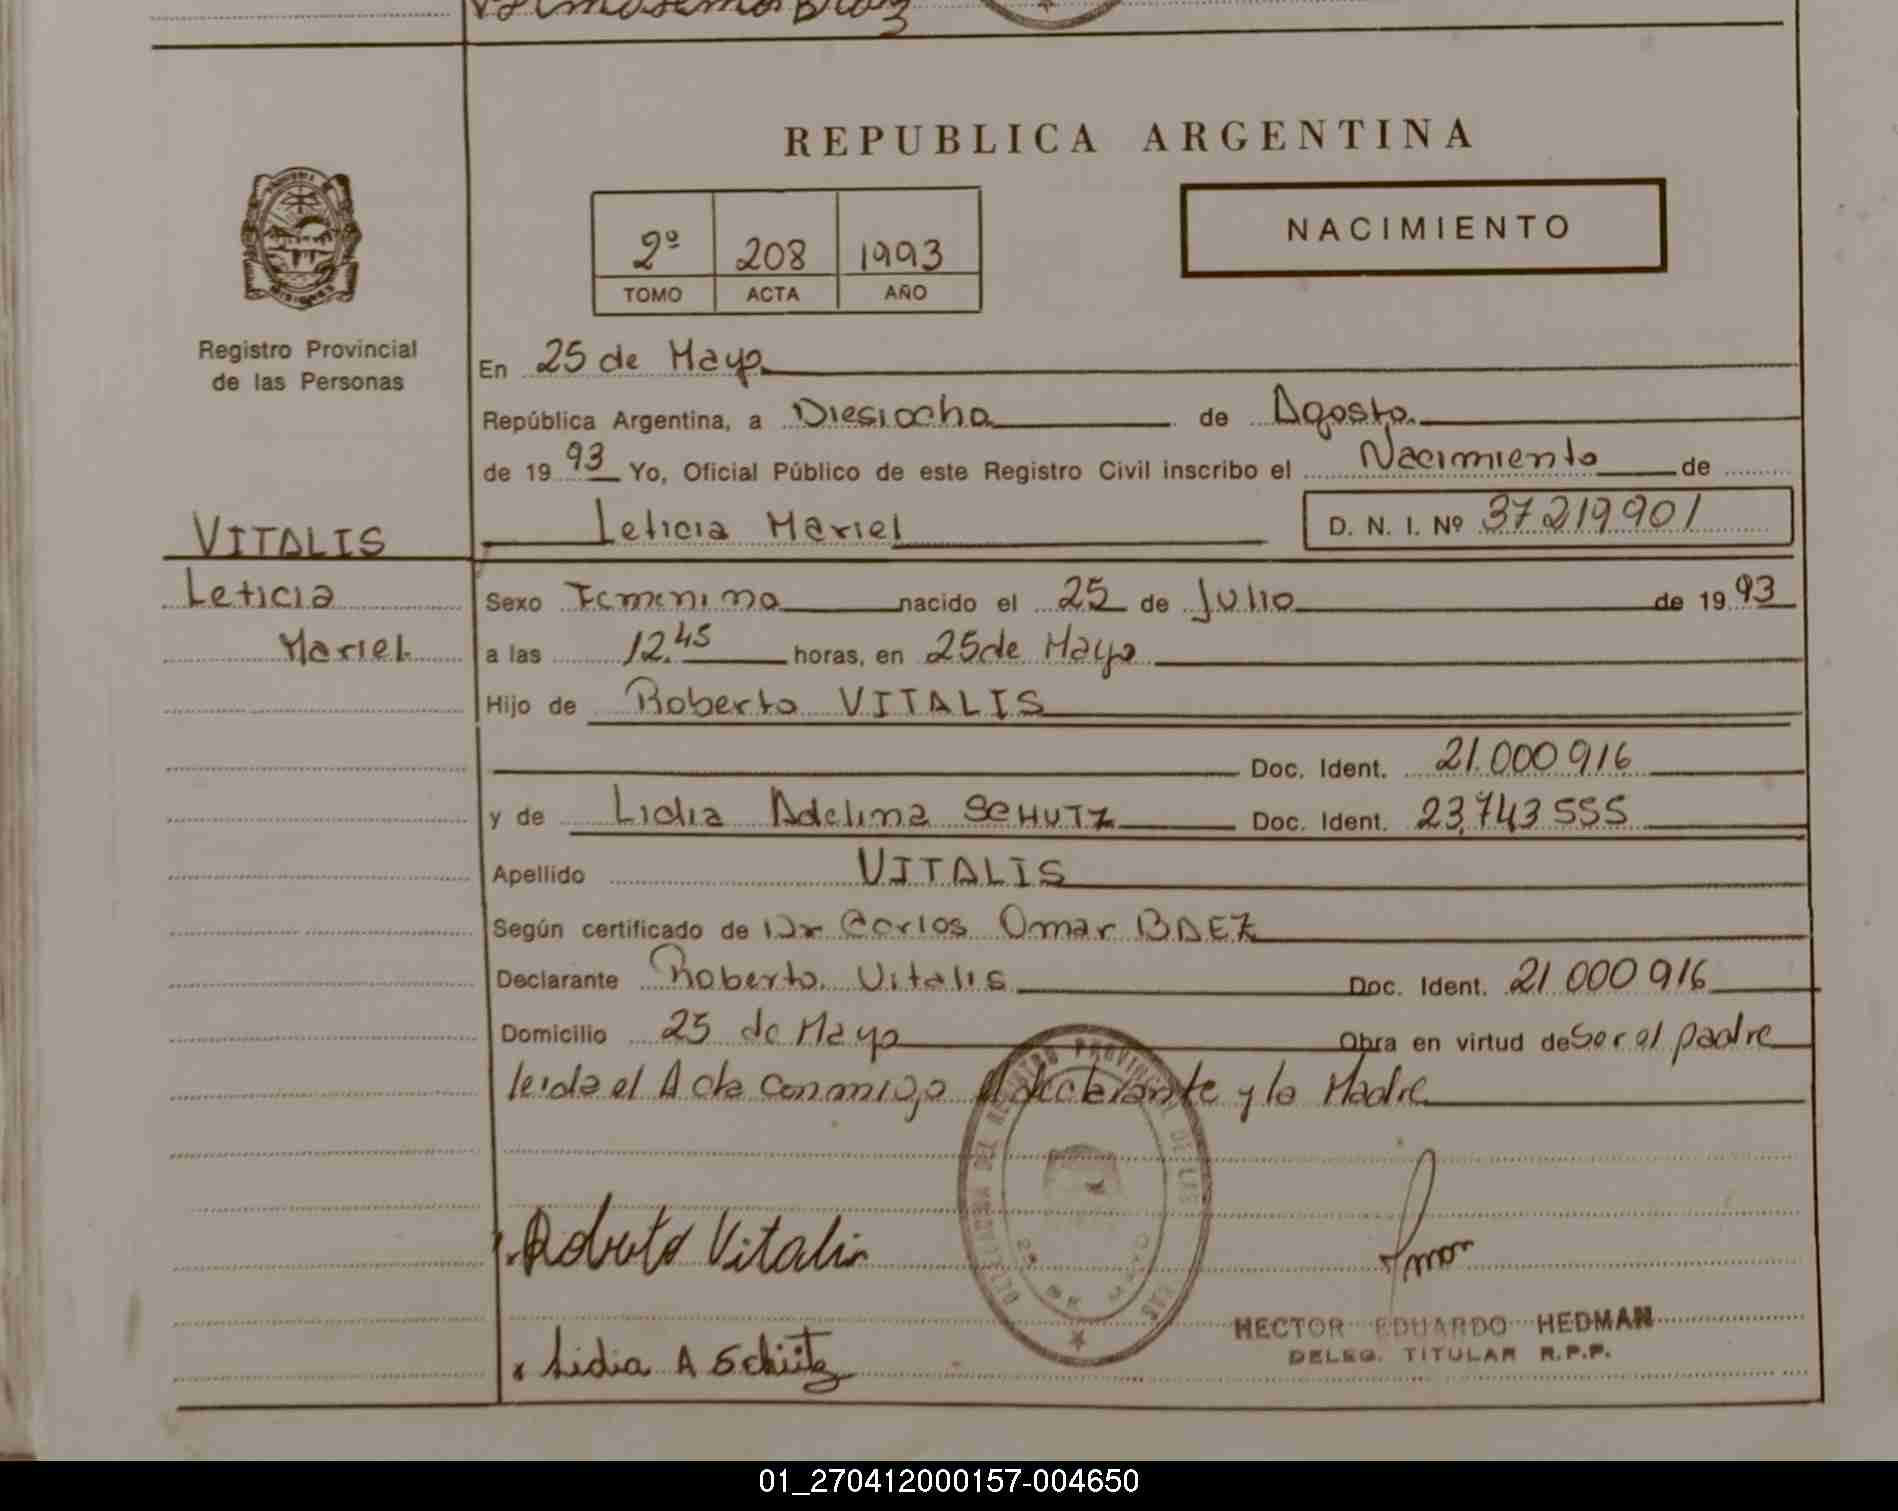 REPUBLICA ARGENTINA
2º 208 1993
TOMO ACTA AÑO
NACIMIENTO
Registro Provincial
de las Personas
En 25 de Mayo
República Argentina, a Diesiocho de Agosto
de 19 93 Yo, Oficial Público de este Registro Civil inscribo el Nacimiento de
VITALIS
Leticia Mariel D. N. I. Nº 37219901
Leticia
Mariel
Sexo Femenino nacido el 25 de Julio de 19 93
a las 12.45 horas, en 25 de Mayo
Hijo de Roberto VITALIS
Doc. Ident. 21.000916
y de Lidia Adelina SCHUTZ Doc. Ident. 23,743555
Apellido VITALIS
Según certificado de Dr Carlos Omar BAEZ
Declarante Roberto Vitalis Doc. Ident. 21 000 916
Domicilio 25 de Mayo Obra en virtud de Ser el padre
leida el Acta conmigo el declarante y la Madre
DELEGACION DEL REGISTRO PROVINCIAL DE LAS
25 DE MAYO
Roberto Vitalis
Lidia A Schütz
HECTOR EDUARDO HEDMAN
DELEG. TITULAR R.P.P.
01_270412000157-004650